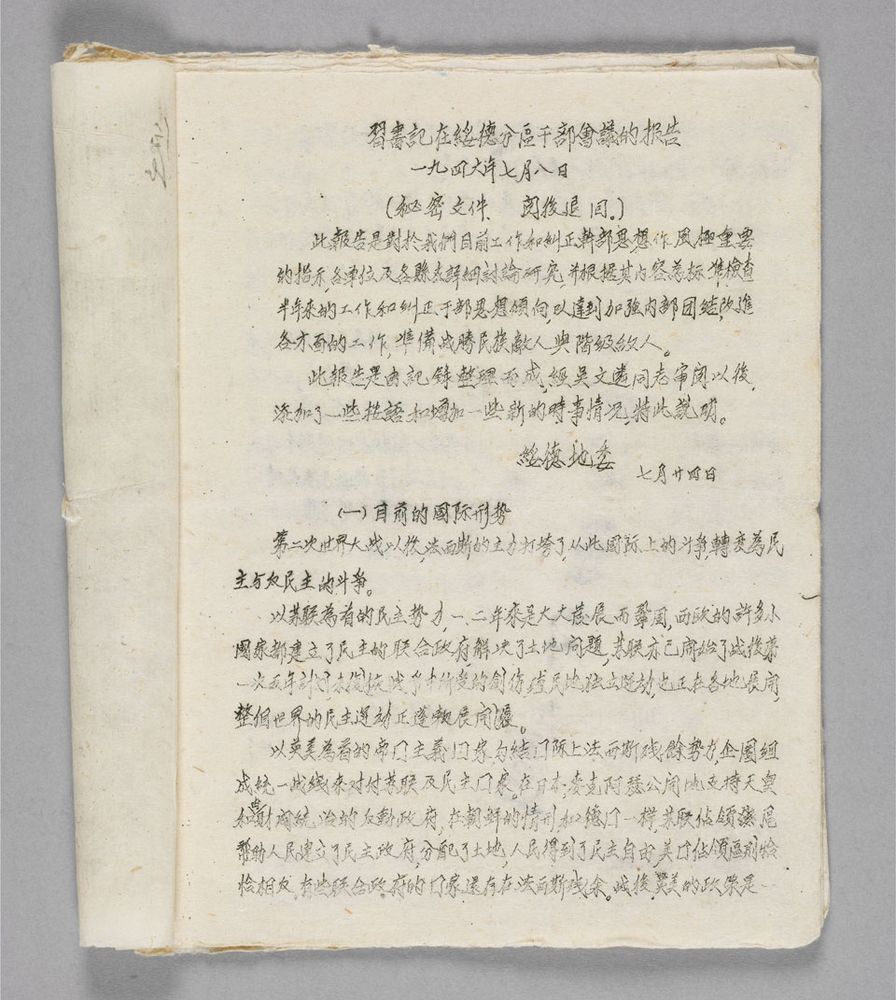 習書記在綏德分區干部會議的报告
一九四六年七月八日
(秘密文件、閱後退回。)
此報告是對於我們目前工作和糾正幹部思想作風極重要
的指示,各單位及各縣應詳細討論研究,并根据其內容為标準,檢查
半年來的工作和糾正干部思想傾向,以達到加強內部団結,改進
各方面的工作,準備战勝民族敵人與階級敌人。
此报告是由記錄整理而成,經吳文遴同志審閱以後,
添加了一些按語和增加一些新的時事情况,特此說明。
綏德地委
七月廿四日
(一)目前的國际形势
第二次世界大战以後,法西斯的主力打垮了,从此國际上的斗爭,轉变為民
主与反民主的斗爭。
以苏联為首的民主势力,一、二年來是大大發展而鞏固,西欧的許多小
國家都建立了民主的联合政府,解决了土地問題,苏联亦已開始了战後第
一次五年計划來恢复战爭中所受的創伤,殖民地独立運动,也正在各地展開,
整個世界的民主運动正蓬勃展開着。
以英美為首的帝囗主義囗家,勾結囗际上法西斯残餘势力,企圖組
成統一战线來对付苏联及民主囗家。在日本:麦克阿瑟公開地支持天皇
和財閥統治的反動政府,在朝鮮的情形,如德囗一样,苏联佔領
帮助人民建立了民主政府,分配了土地,人民得到了民主自由,美囗佔領區則恰
恰相反,有些联合政府的囗家還存在法西斯残余。战後,英美的政策是